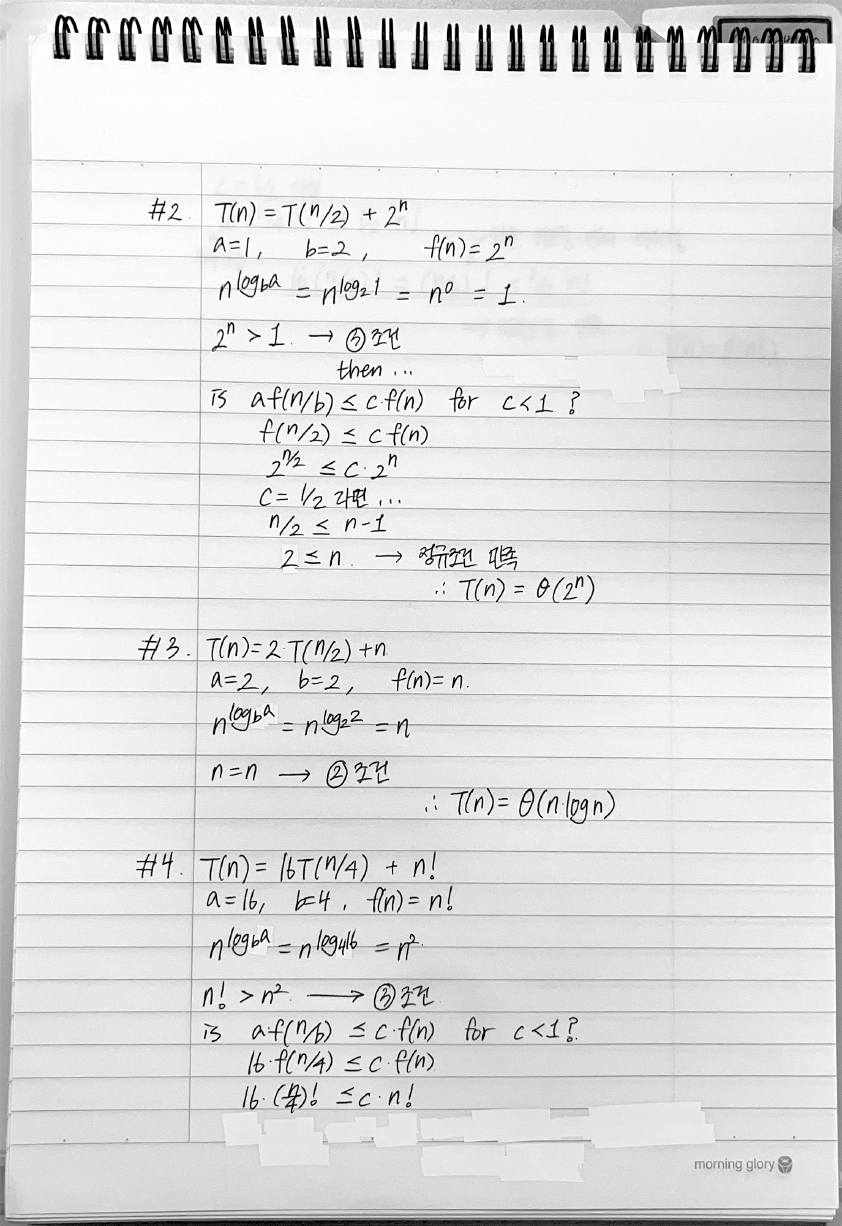 #2. T(n) = T(n/2) + 2ⁿ
a=1, b=2, f(n)=2ⁿ
n^log_b a = n^log_2 1 = n⁰ = 1.
2ⁿ > 1. → ③조건
then ...
is af(n/b) ≤ c·f(n) for c<1 ?
f(n/2) ≤ c f(n)
2^n/2 ≤ c·2ⁿ
C = 1/2 라면 ...
n/2 ≤ n-1
2 ≤ n. → 정규조건 만족
∴ T(n) = θ(2ⁿ)
#3. T(n)=2·T(n/2)+n
a=2, b=2, f(n)=n.
n^log_b a = n^log_2 2 = n
n=n → ②조건
∴ T(n)= θ(n·logn)
#4. T(n) = 16T(n/4) + n!
a=16, b=4, f(n)=n!
n^log_b a = n^log_4 16 = n².
n! > n². → ③조건
is a·f(n/b) ≤ c·f(n) for c<1?
16·f(n/4) ≤ c·f(n)
16·(n/4)! ≤ c·n!
morning glory